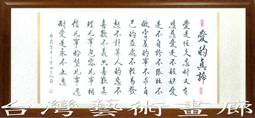 愛的真諦
愛是恆久忍耐又有
恩慈愛是不嫉妒愛
是不自誇不張狂不
做害羞的事不求自
己的益處不輕易發
怒不計算人的惡不
喜歡不義只喜歡真
理凡事包容凡事相
信凡事盼望凡事忍
耐愛是永不止息
台灣藝術畫廊